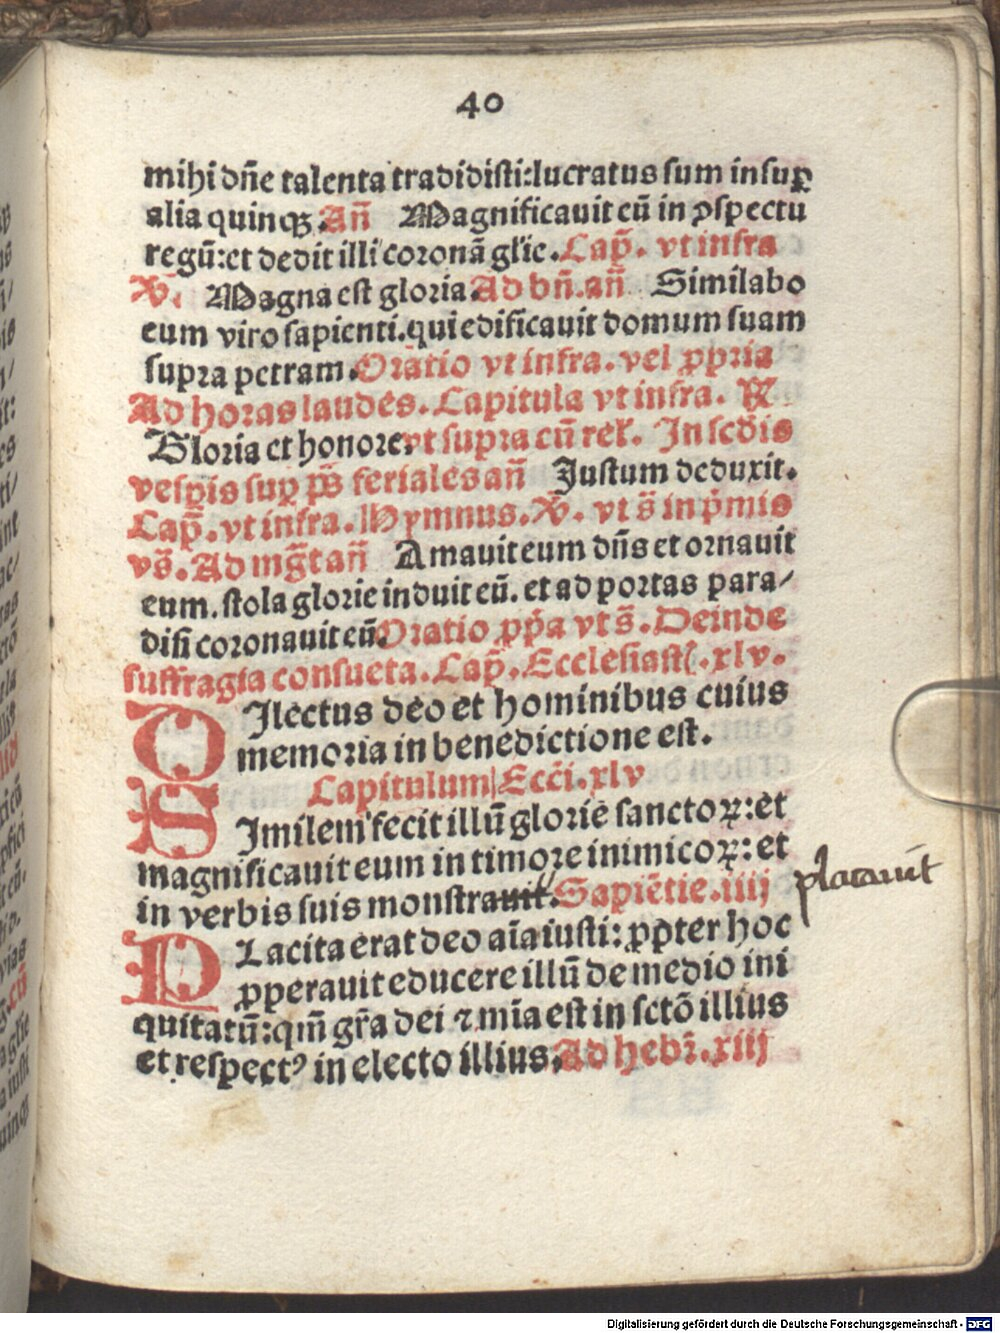 40
mihi dñe talenta tradidisti:lucratus sum insuꝑ
alia quinqꝫ Añ Magnificauit eũ in ꝓspectu
regũ:et dedit illi coronã gl'ie. Cap̃. vt infra
V̾. Magna est gloria. Ad bñ.añ Similabo
eum viro sapienti.qui edificauit domum suam
supra petram. Oratio vt infra. vel ꝓpria
Ad horas laudes. Capitula vt infra. R̾.
Gloria et honore. vt supra cũ rel'. In scđis
vesp̃is sup̱ p̃s feriales añ Justum deduxit.
Cap̃. vt infra. Hymnus. V̾. vt s̃ in p̃mis
vs̃. Ad mg̃t añ Amauit eum dñs et ornauit
eum. stola glorie induit eũ. et ad portas para/
disi coronauit eũ. Oratio ꝓp̃a vt s̃. Deinde
suffragia consueta. Cap̃. Ecclesiasti. xlv.
DIlectus deo et hominibus cuius
memoria in benedictione est.
Capitulum Ecc̃i. xlv
SImilem fecit illũ glorie sanctoꝝ: et
magnificauit eum in timore inimicoꝝ: et
in verbis suis monstrauit. Sapiẽtie. iiij
placauit
PLacita erat deo aĩa iusti: ꝓpter hoc
ꝓperauit educere illũ de medio ini
quitatũ: qm̃ gr̃a dei ⁊ mĩa est in sctõ illius
et respectꝰ in electo illius. Ad hebr̃. xiij
Digitalisierung gefördert durch die Deutsche Forschungsgemeinschaft - DFG